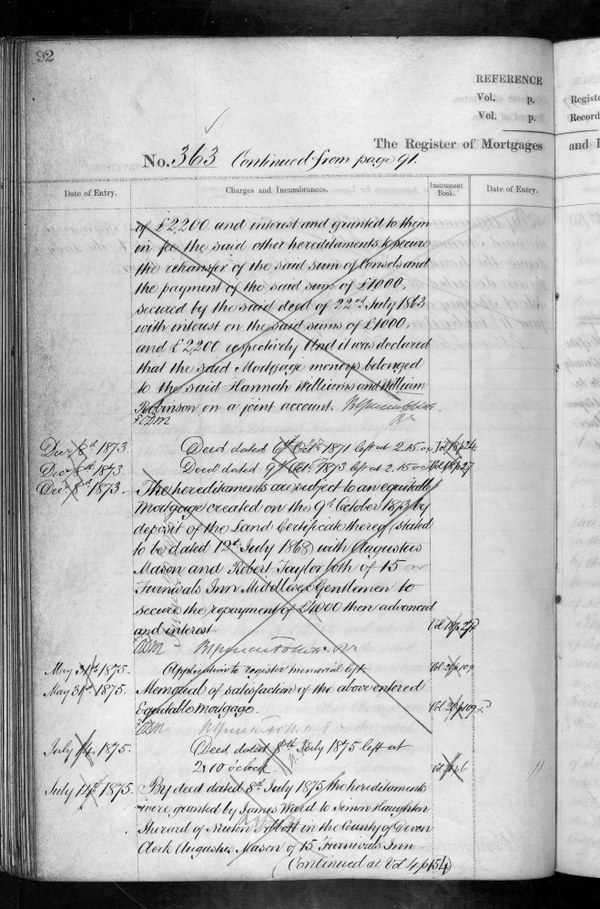 92
REFERENCE
Vol. p.
Vol. p.
The Register of Mortgages
No. 363 Continued from page 91.
Date of Entry.
Charges and Incumbrances.
Instrument Book.
Date of Entry.
of £2,200 and interest and granted to them
in fee the said other hereditaments to secure
the retransfer of the said sum of Consols and
the payment of the said sum of £1000,
secured by the said deed of 22nd July 1863
with interest on the said sums of £1000,
and £2,200 respectively And it was declared
that the said Mortgage moneys belonged
to the said Hannah Williams and William
Robinson on a joint account.
Decr 8th 1873. Deed dated 6th Octr 1871 left at 2.15
Decr 8th 1873. Deed dated 9th Octr 1873 left at 2.15
Decr 8th 1873. The hereditaments are subject to an equitable
Mortgage created on the 9th October 1873 by
deposit of the Land Certificate thereof (stated
to be dated 12th July 1868) with Augustus
Mason and Robert Taylor both of 15
Furnivals Inn Middlesex Gentlemen to
secure the repayment of £4000 then advanced
and interest
May 31st 1875. Application to register memorial left
May 31st 1875. Memorial of satisfaction of the above entered
Equitable Mortgage.
July 14 1875. Deed dated 8th July 1875 left at
2.10 o'clock
July 14th 1875. By deed dated 8th July 1875 the hereditaments
were granted by James Ward to Simon Haughton
Sherard of Newton in the County of Devon
Clerk Augustus Mason of 15 Furnivals Inn
(Continued at Vol 4 p 154)
Registe
Record
and I